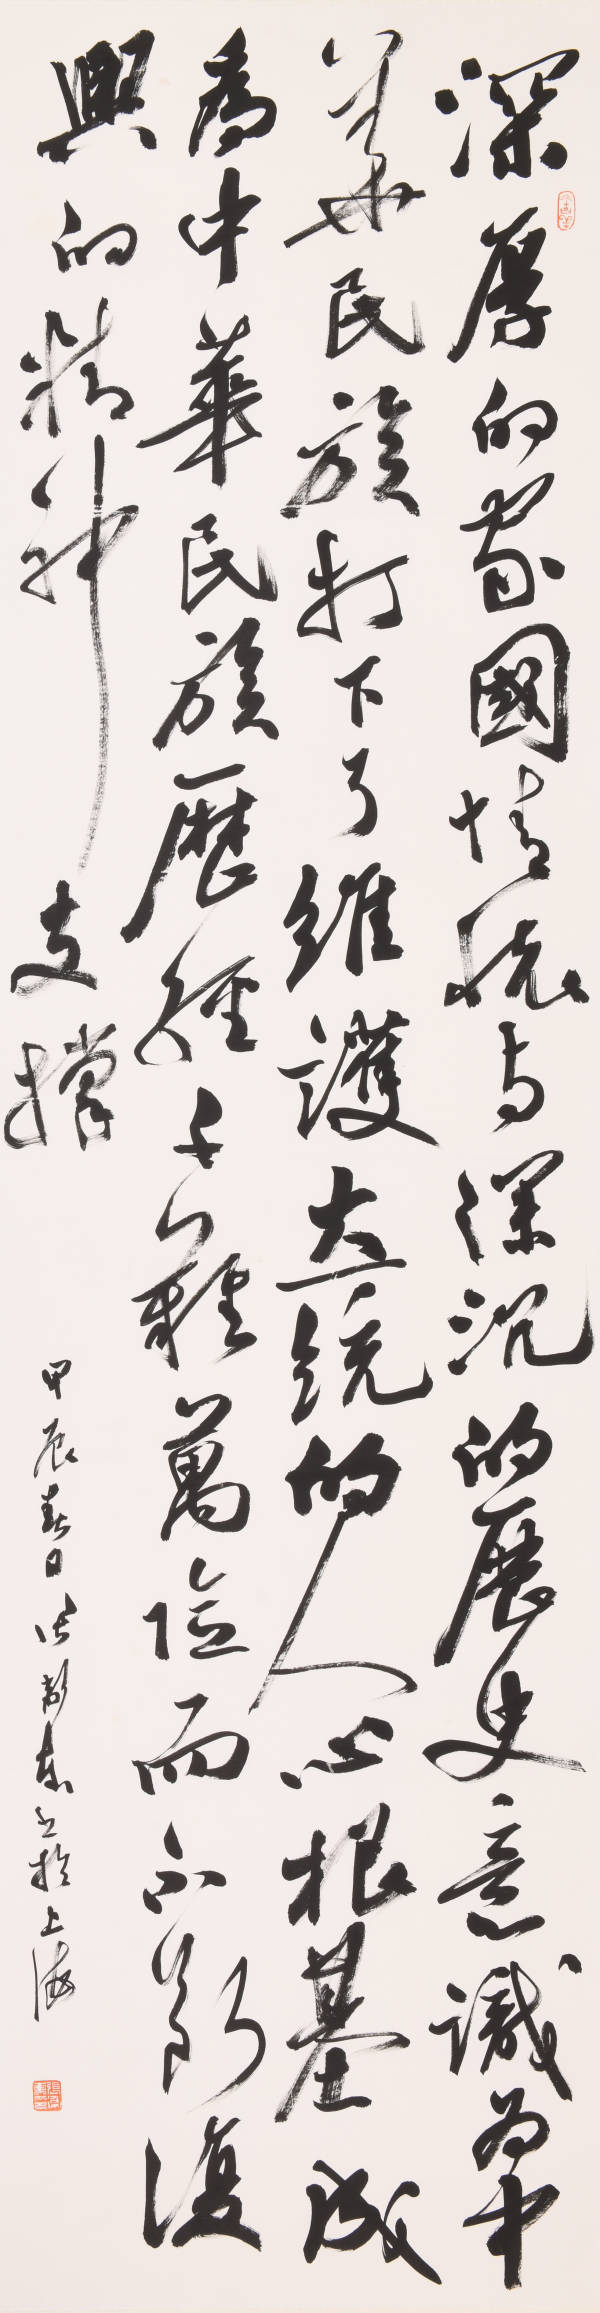 深厚的家國情懷与深沉的歷史意識为中
華民族打下了維護大一統的人心根基成
為中華民族歷經千難萬險而不斷復
興的精神支撐
甲辰春日張書於上海